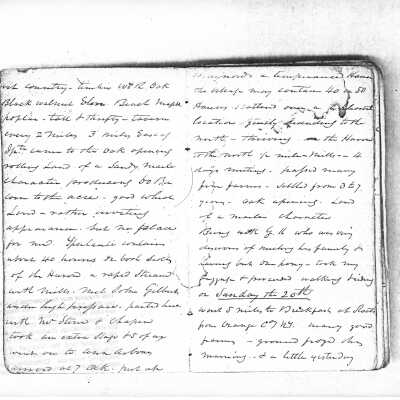 rich country - timber W & R Oak
Black walnut Elm Beach Maple
poplar - tall & thrifty - tavern
every 2 miles 3 miles East of
came to the Oak openings
rolling Land of a Sandy Marle
Character producing 60 Bu
corn to the acre - good wheat
Land - rather inviting
appearance but no place
for me. Ypsilanti contains
about 40 houses on both sides
of the Huron a rapid Stream
with mills. met John Gilbert
under high pressure. parted here
with Mr Stone & Chapin
took an extra Stage & 5 of us
went on to Ann Arbour
arrived at 7 Oclk. put up
a temperance House
the village may contain 40 or 50
Houses scattered over a
location gently to the
north - thriving the Huron
to the north ½ mile - Mills - 4
days meeting. passed many
fine farms - settled from 3 to 7
years - oak opening. Land
of a marley character
Being with G. H who was very
desirous of meeting his family &
having but one pony - took my
luggage & proceeded walking & riding
on Sunday the 20th
went 5 miles to Breakfast at
from Orange Cty N.Y. many good
farms - ground froze this
morning. & a little yesterday